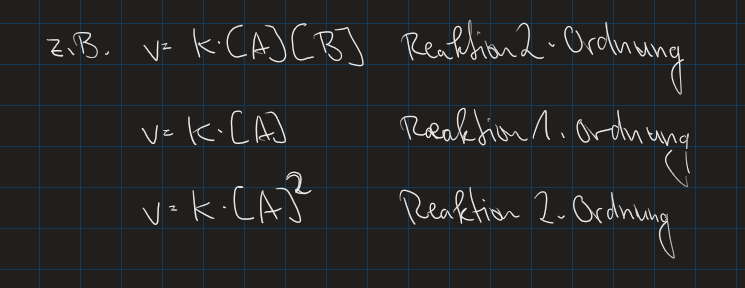 z.B. v= k·[A][B] Reaktion 2. Ordnung
v= k·[A] Reaktion 1. Ordnung
v= k·[A]² Reaktion 2. Ordnung